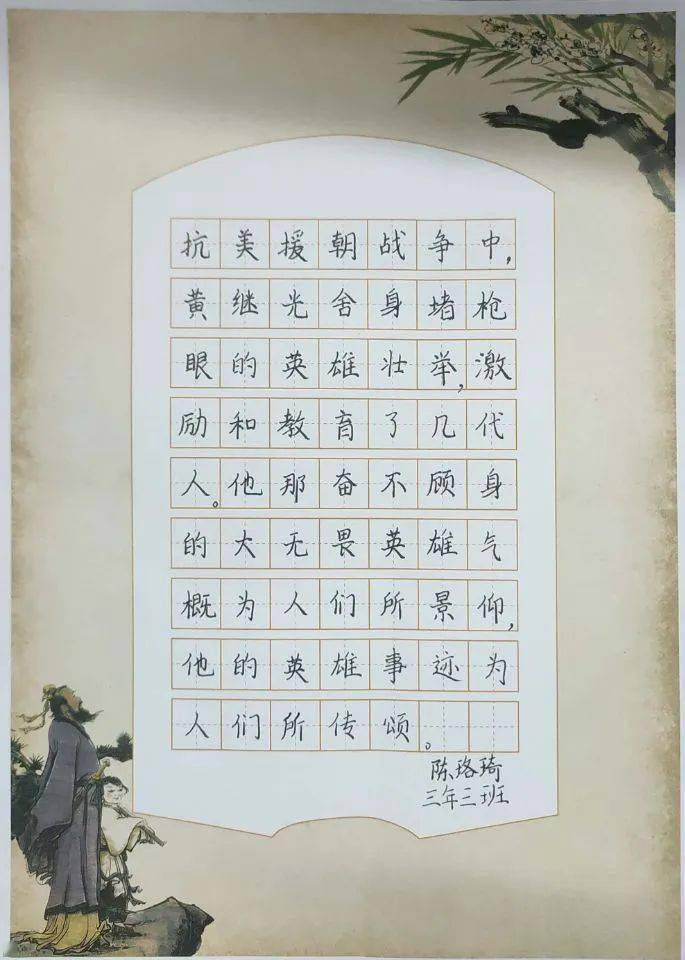 抗美援朝战争中,
黄继光舍身堵枪
眼的英雄壮举,激
励和教育了几代
人。他那奋不顾身
的大无畏英雄气
概为人们所景仰,
他的英雄事迹为
人们所传颂。
陈珞琦
三年三班